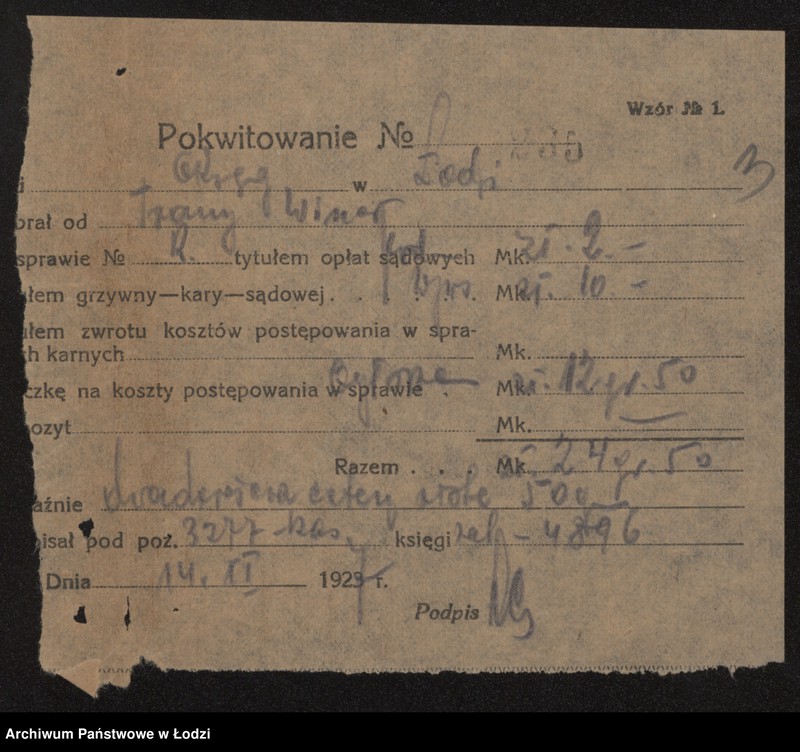 Wzór № 1.
Pokwitowanie №
i Okręg w Łodzi
brał od Firany Winer
sprawie № tytułem opłat sądowych Mk. zł. 2.-
łem grzywny—kary—sądowej . . . . . . Mk. zł. 10 -
łem zwrotu kosztów postępowania w spra-
ch karnych Mk.
czkę na koszty postępowania w sprawie . Mk. zł. 12 gr. 50
ozyt Mk.
Razem . . . Mk. zł. 24 gr. 50
aźnie dwadzieścia cztery złote 50
isał pod poz. 3277 kas. księgi 4896
Dnia 14. II 1923 r.
Podpis
Archiwum Państwowe w Łodzi